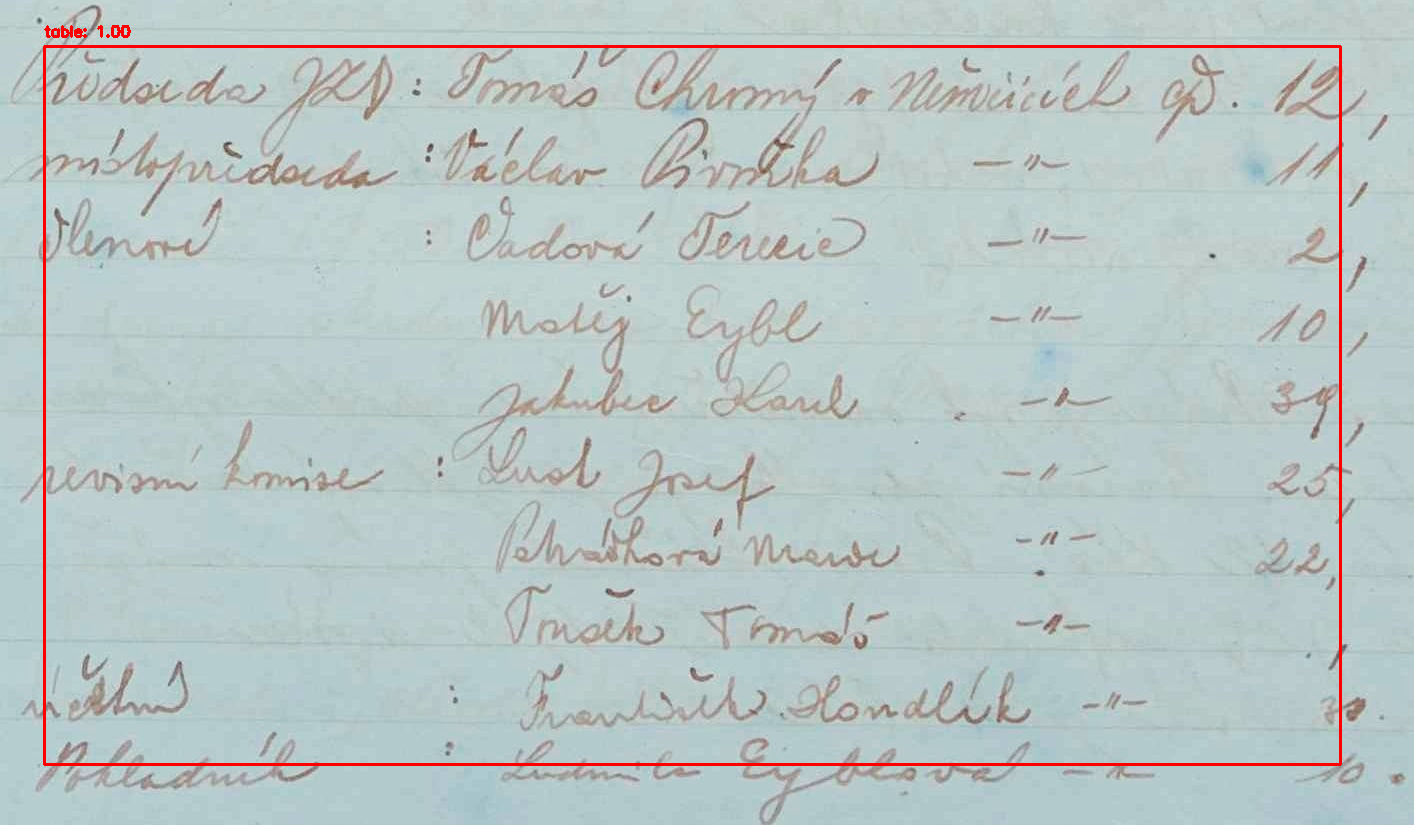 table: 1.00
Předseda JZD : Tomáš Chromý v Němčicích čp. 12,
místopředseda : Václav Pivnička -"- 11,
členové : Vadová Terezie -"- 2,
Matěj Eybl -"- 10,
Jakubec Karel -"- 39,
revisní komise : Lust Josef -"- 25,
Marie -"- 22,
Toušek Tomáš -"- ,
účetní : František Hondlík -"- 30.
Pokladník : Ludmila Eyblová -"- 10.